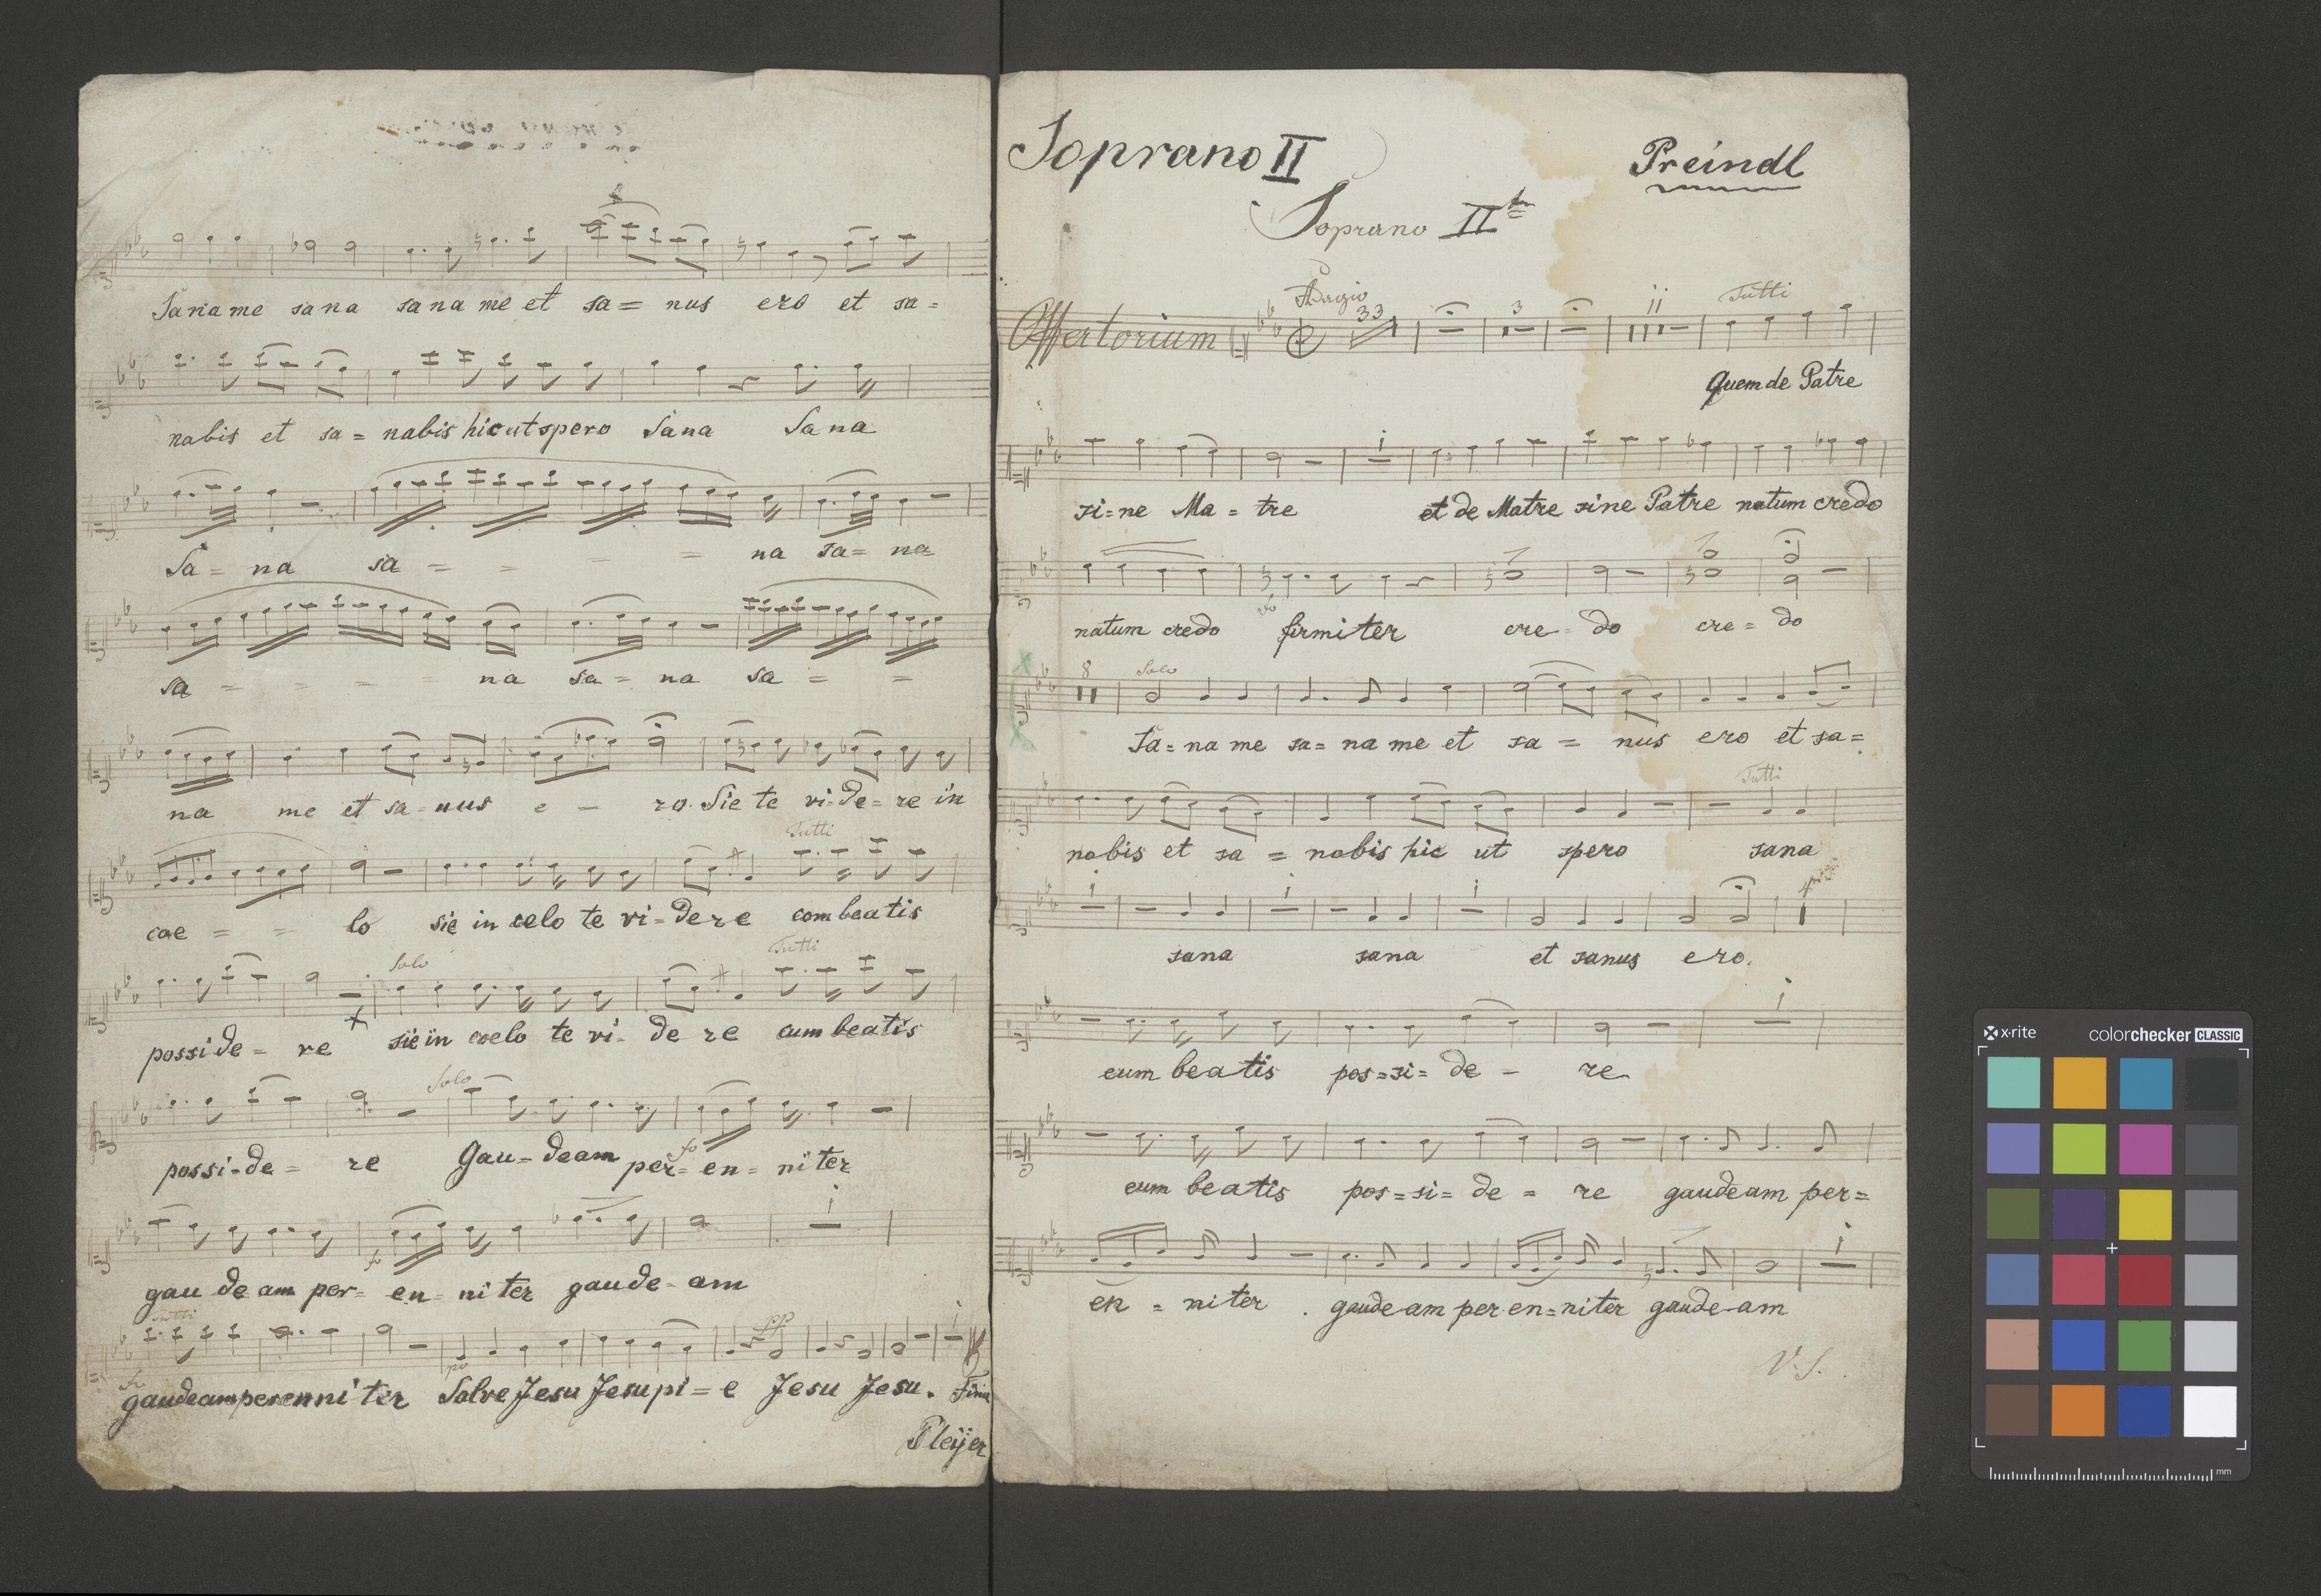 Sana me sana sana me et sa= nus ero et sa=
nabis et sa = nabis hic ut spero Sana Sana
Sa = na sa = = = = na sa= na
sa = = = = na sa = na sa = =
na me et sa=nus e – ro. Sie te vi=de=re in
Tutti
cae = = lo sie in celo te vi=dere com beatis
Solo Tutti
posside = re sie in coelo te vi- de re cum beatis
Solo
possi-de = re Gau=deam per= en= niter
fo
gau de am per= en= niter gaude-am
fo
Tutti pp i
gaudeam perenniter Salve Jesu Jesu pi=e Jesu Jesu. Fine
fo po
Pleÿer
Soprano II Preindl
Soprano II
Adagio
Offertorium 33 3 ii Tutti
Quem de Patre
i
si=ne Ma = tre et de Matre sine Patre natum credo
natum credo firmiter cre = do cre = do
8 Solo
Sa=na me sa=na me et sa = nus ero et sa=
Tutti
nabis et sa = nabis hic ut spero sana
i i i 4
sana sana et sanus ero.
i
cum beatis pos=si= de – re
cum beatis pos=si= de = re gaudeam per=
i
en = niter . gaudeam per en=niter gaude-am
V. S.
x-rite colorchecker CLASSIC
mm